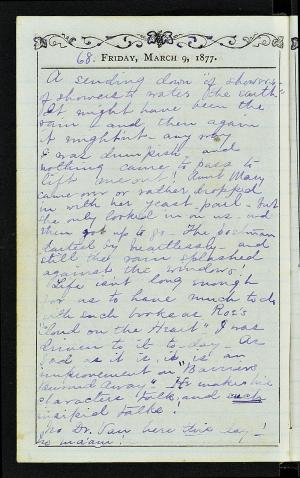 68. FRIDAY, MARCH 9, 1877.
A sending down "of showers -
of showers to water the earth"
It might have been the
rain - and then again
it mightn't - any way
I was dumpish and
nothing came to pass to
lift me out! Aunt Mary
came in or rather dropped
in with her yeast-pail - but
she only looked in on us, and
then got up to go - The postman
darted by heartlessly and
still the rain splashed
against the windows!
Life isn't long enough
for us to have much to do
with such books as Roe's
I was
driven to it to-day. As
bad as it is, it is an
improvement on "Barriers
Burned Away" - He makes his
characters talk, and such
insipid talks!
No Dr. here this day!
No ma'am!